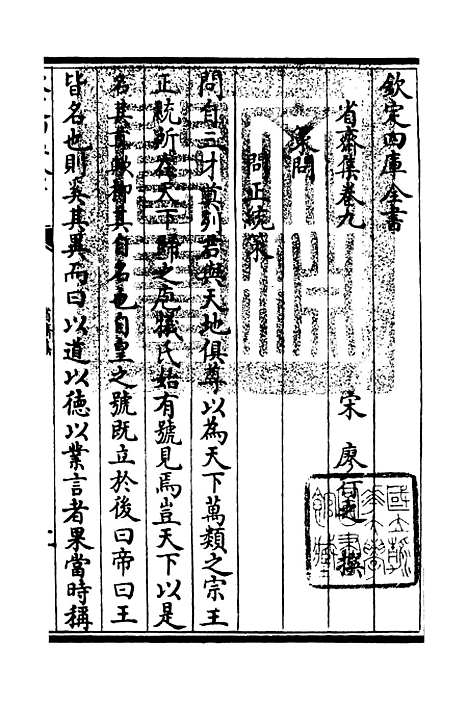 欽定四庫全書
省齋集卷九
宋 廖行之 撰
策問
問正統策
問自三才奠列君與天地俱尊以為天下萬類之宗王
正統所在天下歸之庖犧氏始有號見焉豈天下以是
名其君歟抑其自名也自皇之號既立於後曰帝曰王
皆名也則奚其異而曰以道以德以業言者果當時稱